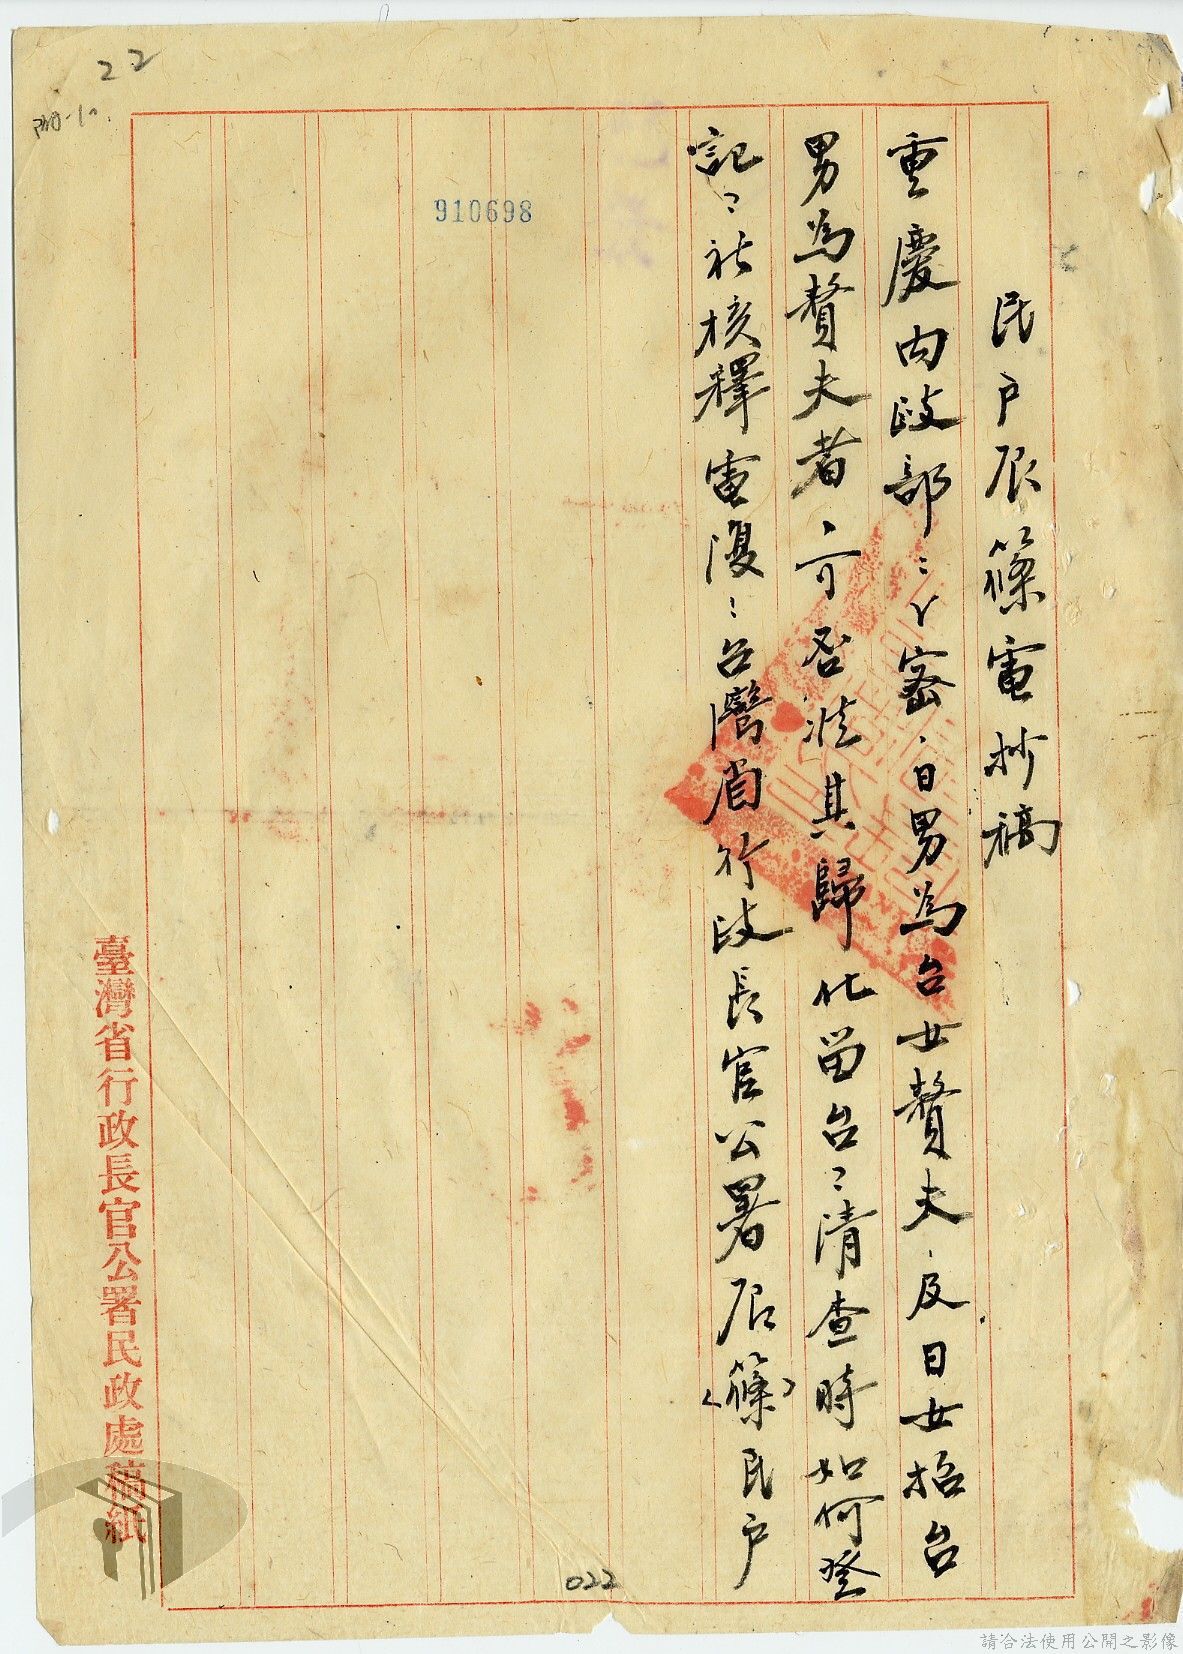 22
910698
民戶辰篠電抄稿
重慶內政部:密。日男為台女贅夫,及日女招台
男為贅夫者,可否准其歸化留台?清查時如何登
記?祈核釋電復。台灣省行政長官公署辰(篠)民戶
臺灣省行政長官公署民政處稿紙
022
請合法使用公開之影像